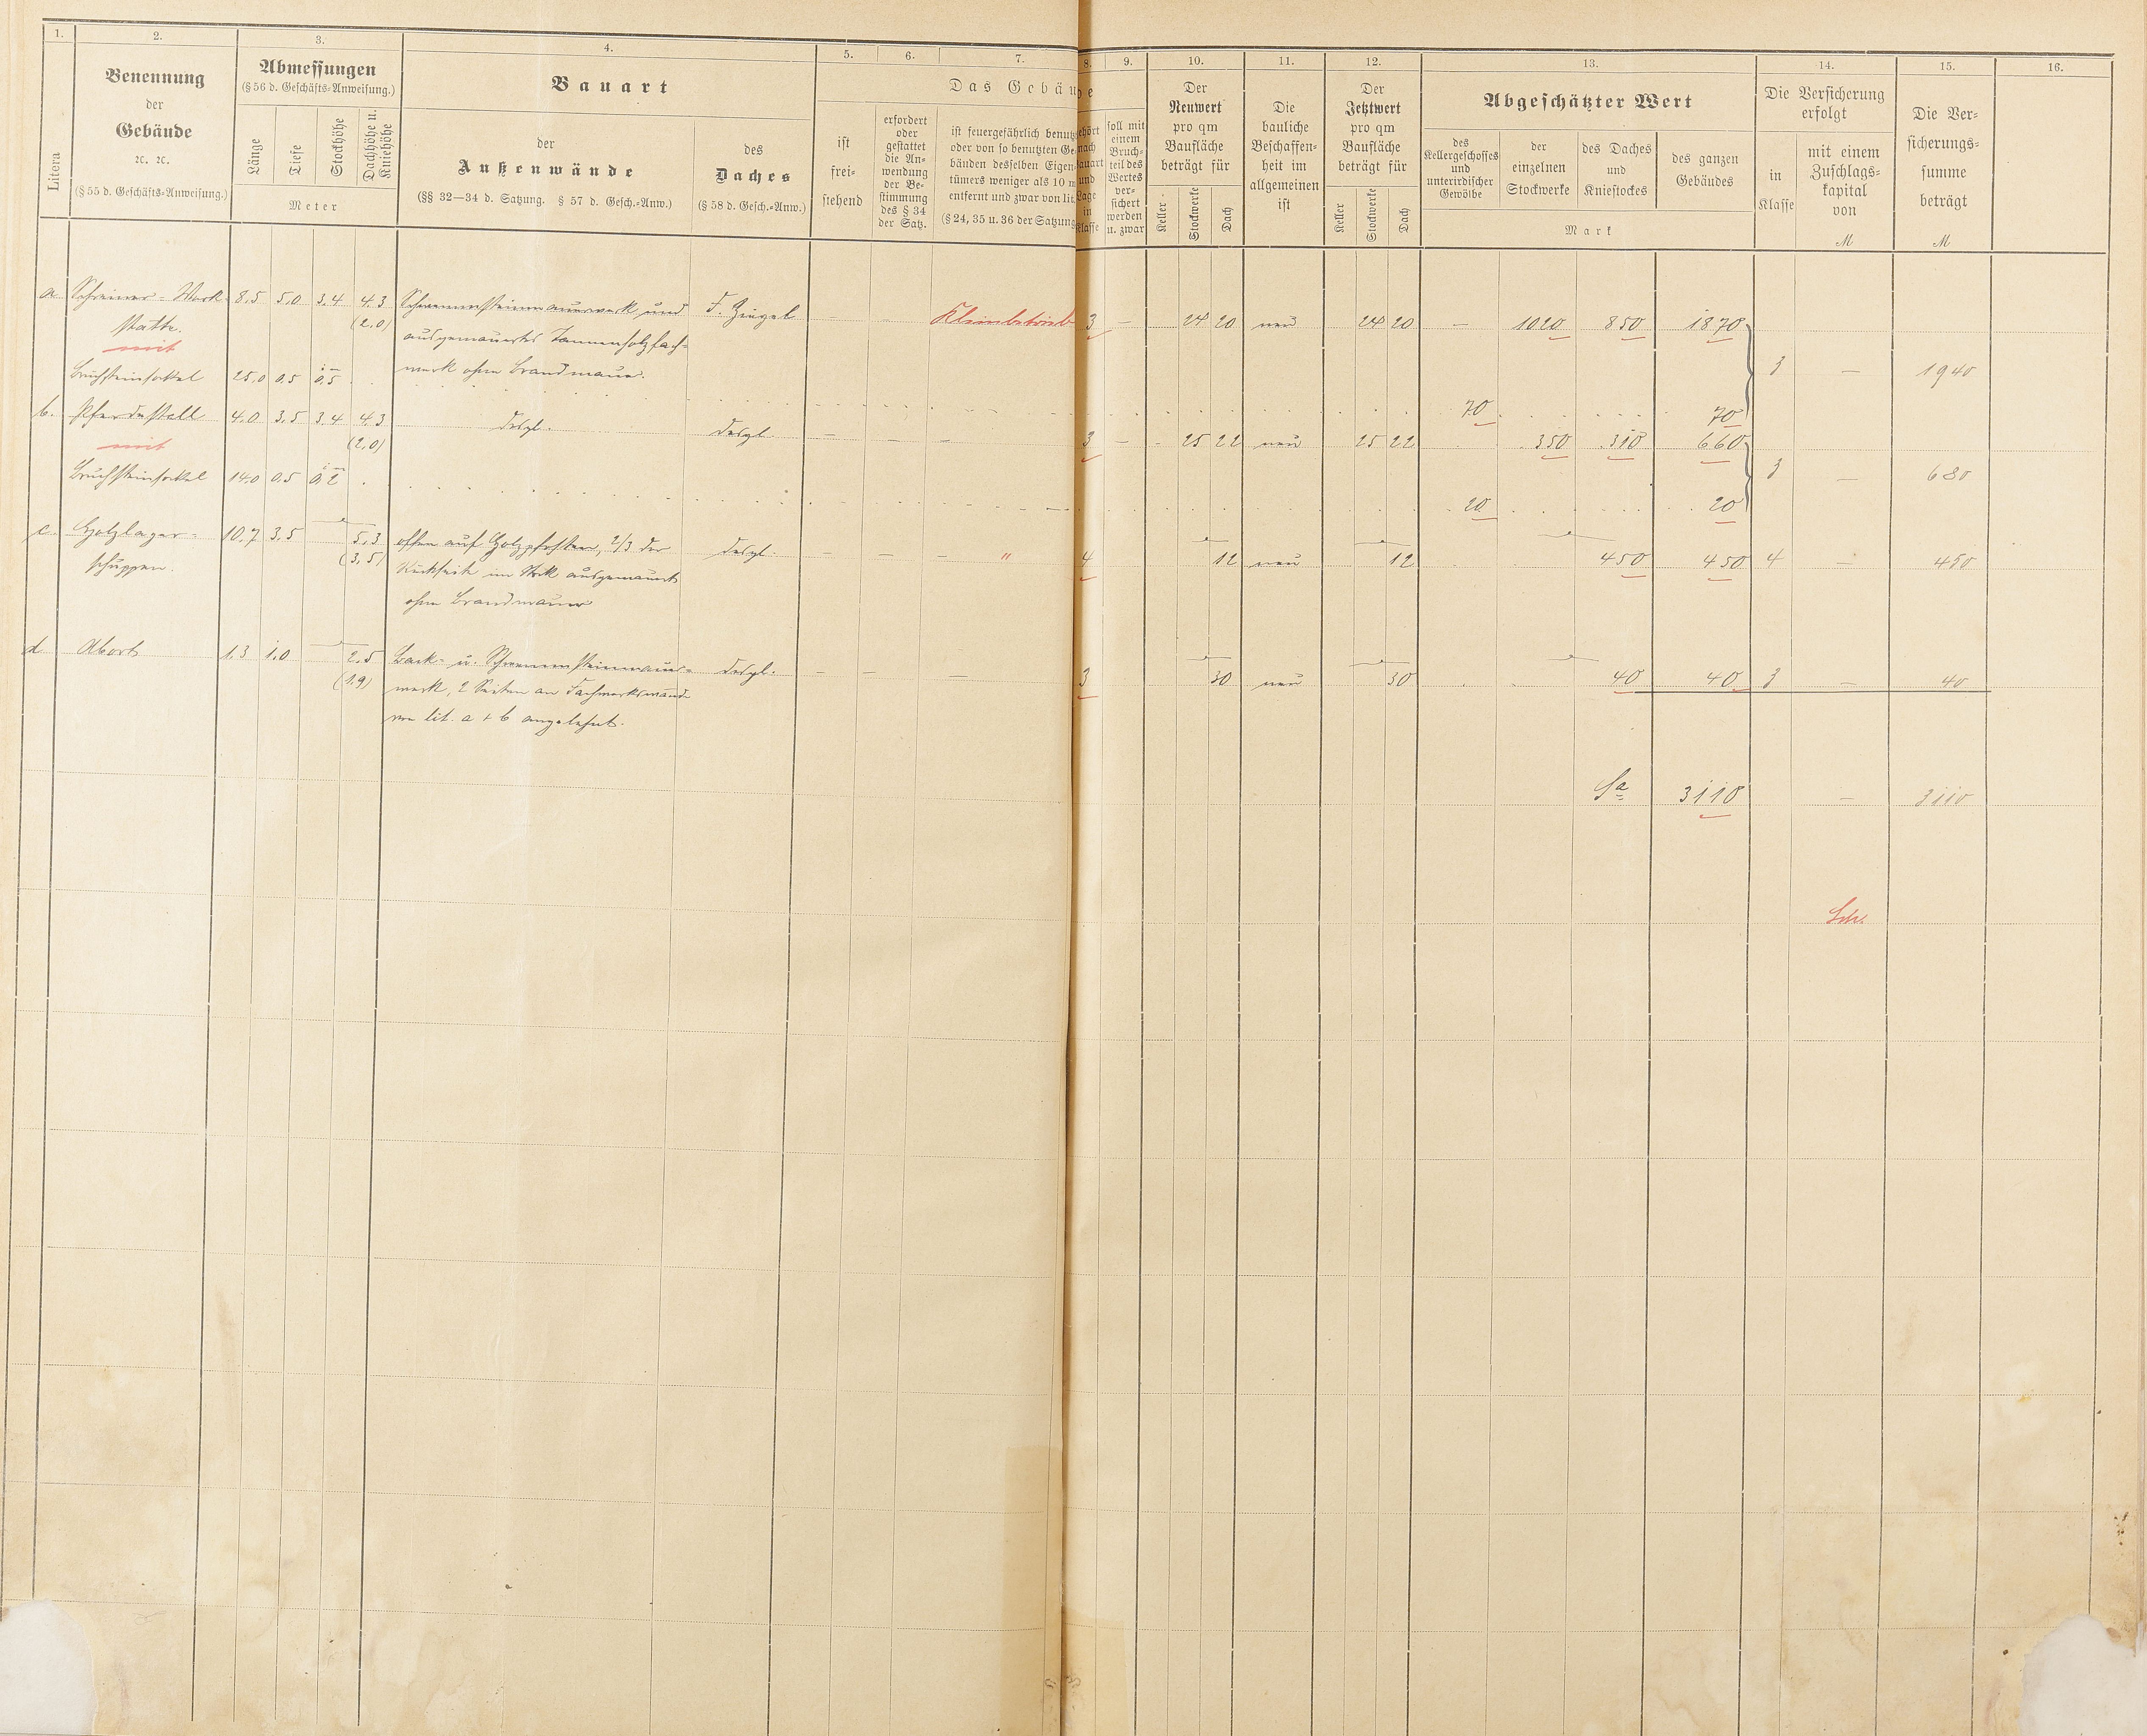 1. 2. 3. 4. 5. 6. 7. 8. 9. 10. 11. 12. 13. 14. 15. 16.
Litera
Benennung
der
Gebäude
ꝛc. ꝛc.
(§ 55 d. Geschäfts-Anweisung.)
Abmessungen
(§ 56 d. Geschäfts-Anweisung.)
Länge
Tiefe
Stockhöhe
Dachhöhe u.
Kniehöhe
Meter
Bauart
der
Außenwände
(§§ 32—34 d. Satzung. § 57 d. Gesch.-Anw.)
des
Daches
(§ 58 d. Gesch.-Anw.)
Das Gebäude
ist
frei-
stehend
erfordert
oder
gestattet
die An-
wendung
der Be-
stimmung
des § 34
der Satz.
ist feuergefährlich benutzt
oder von so benutzten Ge-
bänden desselben Eigen-
tümers weniger als 10 m
entfernt und zwar von lit.
(§ 24, 35 u. 36 der Satzung
gehört
nach
Bauart
und
Lage
in
Klasse
soll mit
einem
Bruch-
teil des
Wertes
ver-
sichert
werden
u. zwar
Der
Neuwert
pro qm
Baufläche
beträgt für
Keller
Stockwerke
Dach
Die
bauliche
Beschaffen-
heit im
allgemeinen
ist
Der
Jetztwert
pro qm
Baufläche
beträgt für
Keller
Stockwerke
Dach
Abgeschätzter Wert
des
Kellergeschosses
und
unterirdischer
Gewölbe
der
einzelnen
Stockwerke
des Daches
und
Kniestockes
des ganzen
Gebäudes
Mark
Die Versicherung
erfolgt
in
Klasse
mit einem
Zuschlags-
kapital
von
M
Die Ver-
sicherungs-
summe
beträgt
M
a. Schreiner-Werk- 8,5 5,0 3,4 4,3 Schwemmsteinmauerwerk und F. Ziegel — — Kleinbetrieb 3 — 24 20 neu 24 20 — 1020 850 1870
stätte. (2,0) ausgemauertes Tannenholzfach-
mit werk ohne Brandmauer.
Bruchsteinsockel 25,0 0,5 i. 0,5 70 70 3 — 1940
b. Pferdestall 4,0 3,5 3,4 4,3 desgl. desgl. — — — 3 — 25 22 neu 25 22 350 310 660
mit (2,0)
Bruchsteinsockel 14,0 0,5 i. 0,2 20 20 3 — 680
c. Holzlager- 10,7 3,5 5,3 offen auf Holzpfosten, 2/3 der desgl. — — — " 4 12 neu 12 450 450 4 — 450
schuppen. (3,5) Rückseite im Stock ausgemauert
ohne Brandmauer
d Abort 1,3 1,0 2,5 Back- u. Schwemmsteinmauer- desgl. — — — 3 30 neu 30 40 40 3 — 40
(1,9) werk, 2 Seiten an Fachwerkswände
von lit. a + b angelehnt.
Sa 3110 — 3110